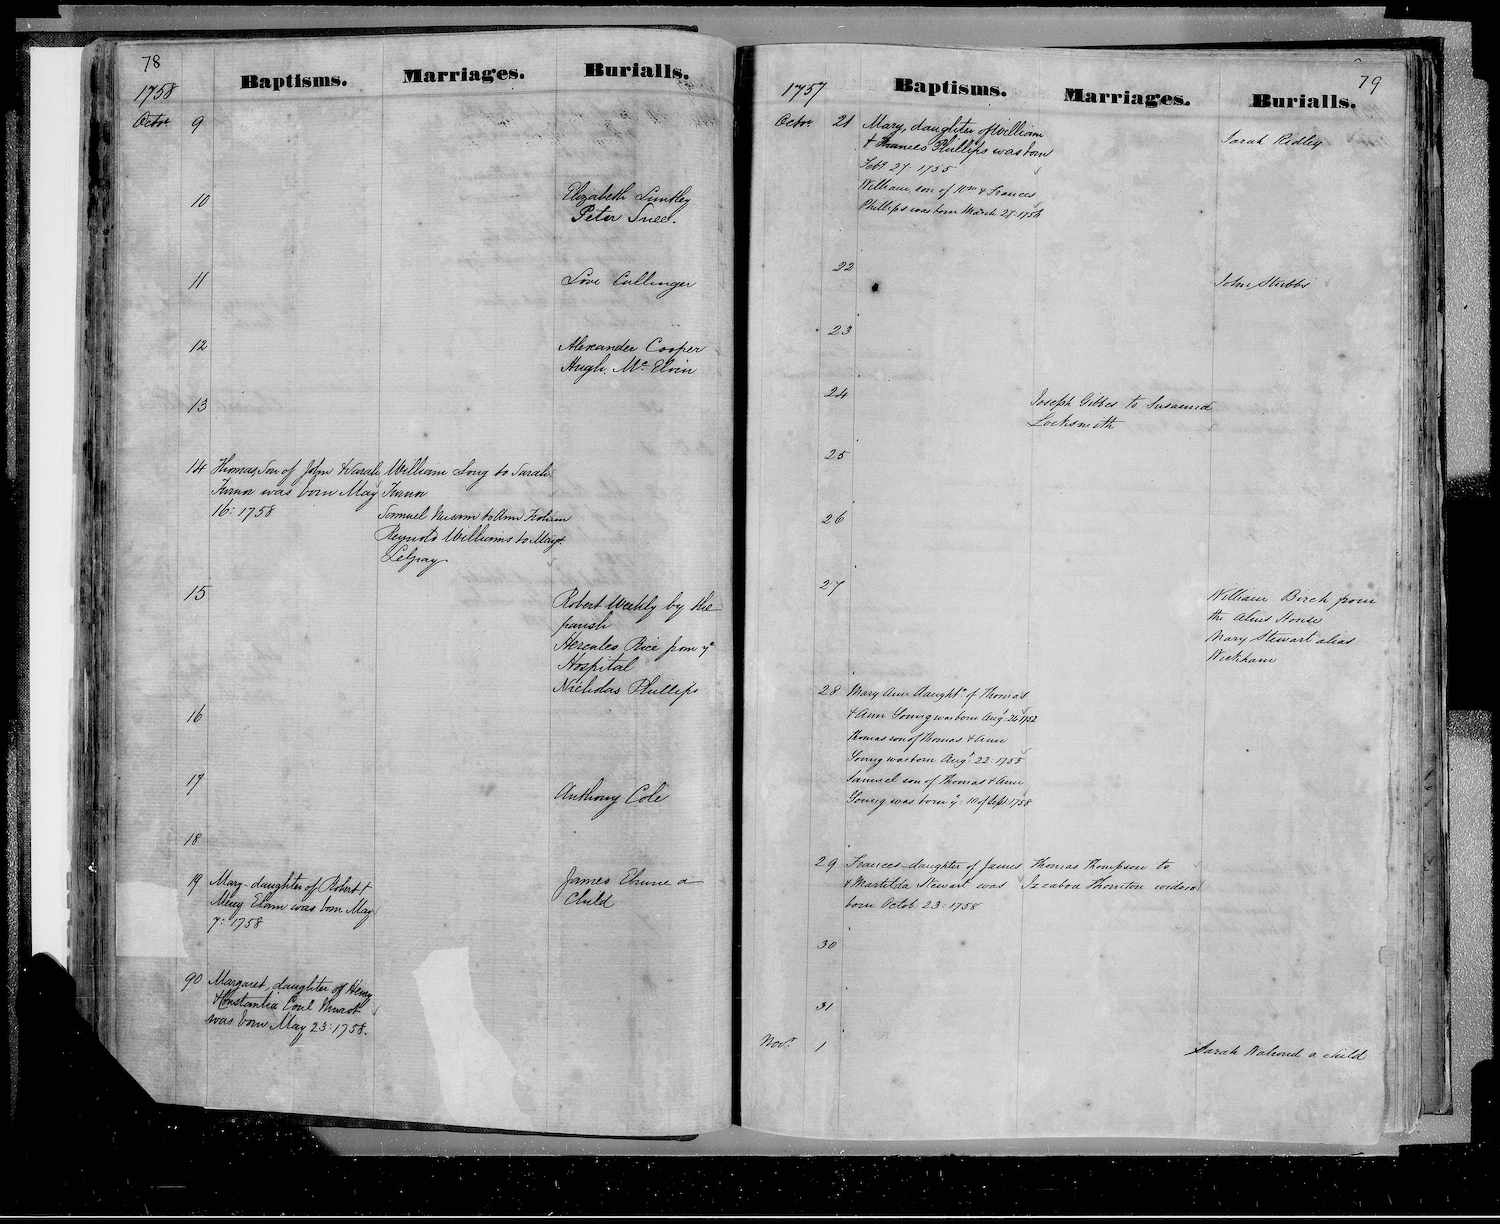 78
1758
Baptisms. Marriages. Burialls.
Octr 9
10 Elizabeth
Peter
11 Love Callinger
12 Alexander Cooper
Hugh Mc Elvin
13
14 Thomas Son of John & Sarah William Long to Sarah
was born May
16: 1758 Samuel to Ann
Reynold Williams to Mary
15 Robert Weekly by the
parish
Hercules Rice from ye
Hospital
Nicholas Phillips
16
17 Anthony Cole
18
19 Mary daughter of Robert & James a
Mary was born May Child
7: 1758
90 Margaret daughter of Henry
& Constantia
was born May 23: 1758.
79
1757
Baptisms. Marriages. Burialls.
Octr 21 Mary, daughter of William Sarah Ridley
& Frances Phillips was born
Feb. 27 1755
William son of Wm & Frances
Phillips was born March 27: 1758
22 John Stubbs
23
24 Joseph Gibbes to Susanna
Locksmith
25
26
27 William Birch from
the Alms House
Mary Stewart alias
Wickham
28 Mary Ann daughtr of Thomas
& Ann Young was born Augt 26 1752
Thomas son of Thomas & Ann
Young was born Augt 22: 1755
Samuel son of Thomas & Ann
Young was born ye 10 of Sept 1758
29 Frances daughter of James Thomas Thompson to
& Martilda Stewart was Thornton widow
born Octob 23: 1758
30
31
Novr 1 Sarah Walrond a child